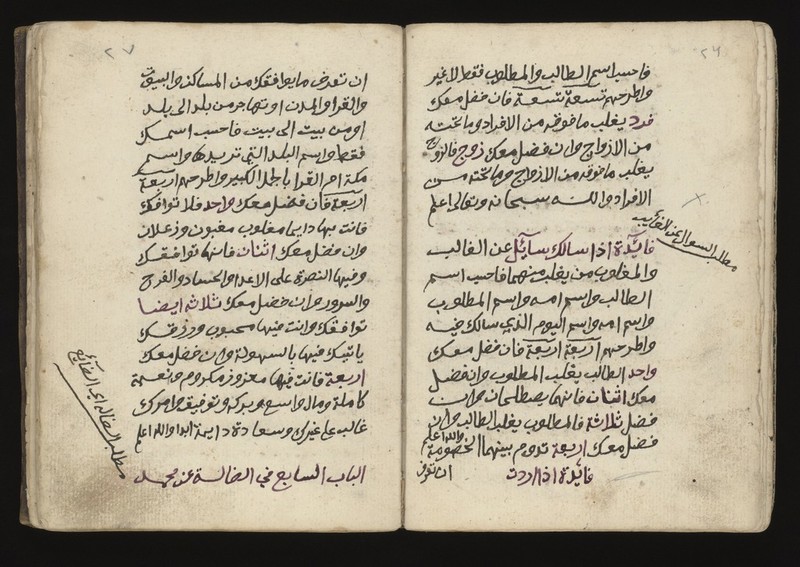 ٢٦
فاحسب اسم الطالب والمطلوب فقط لاغير
واطرحهم تسعة تسعة فان فضل معك
فرد يغلب مافوقه من الافراد وماتحته
من الازواج وان فضل معك زوج فالزوج
يغلب مافوقه من الازواج وماتحته من
الافراد والله سبحانه وتعالى اعلم
مطلب السوال عن الغائب
فائدة اذا سالك سايل عن الغالب
والمغلوب من يغلب منهما فاحسب اسم
الطالب واسم امه واسم المطلوب
واسم امه واسم اليوم الذي سالك فيه
واطرحهم اربعة اربعة فان فضل معك
واحد الطالب يغلب المطلوب وان فضل
معك اثنان فانهما يصطلحان وان
فضل ثلاثة فالمطلوب يغلب الطالب وان
فضل معك اربعة تدوم بينهما الخصومة والله اعلم
فايدة اذا اردت
ان تعرف
٢٧
ان تعرف مايوافقك من المساكن والبيوت
والقرا والمدن او تهاجر من بلد الى بلد
او من بيت الى بيت فاحسب اسمك
فقط واسم البلد التي تريدها واسم
مكة ام القرا بالجمل الكبير واطرحهم اربعة
اربعة فان فضل معك واحد فلا توافقك
فانت بها دايما مغلوب مغبون وزعلان
وان فضل معك اثنان فانها توافقك
وفيها النصرة على الاعدا والحساد والفرح
والسرور وان فضل معك ثلاثه ايضا
توافقك وانت فيها محبوب ورزقك
ياتيك فيها بالسهولة وان فضل معك
اربعة فانت فيها معزوز مكروم ونعمة
كاملة ومال واسع وبركه وتوفيق وامرك
غالب على غيرك وسعادة دايمة ابدا والله اعلم
الباب السابع في الضالة عن
مطلب الضالة